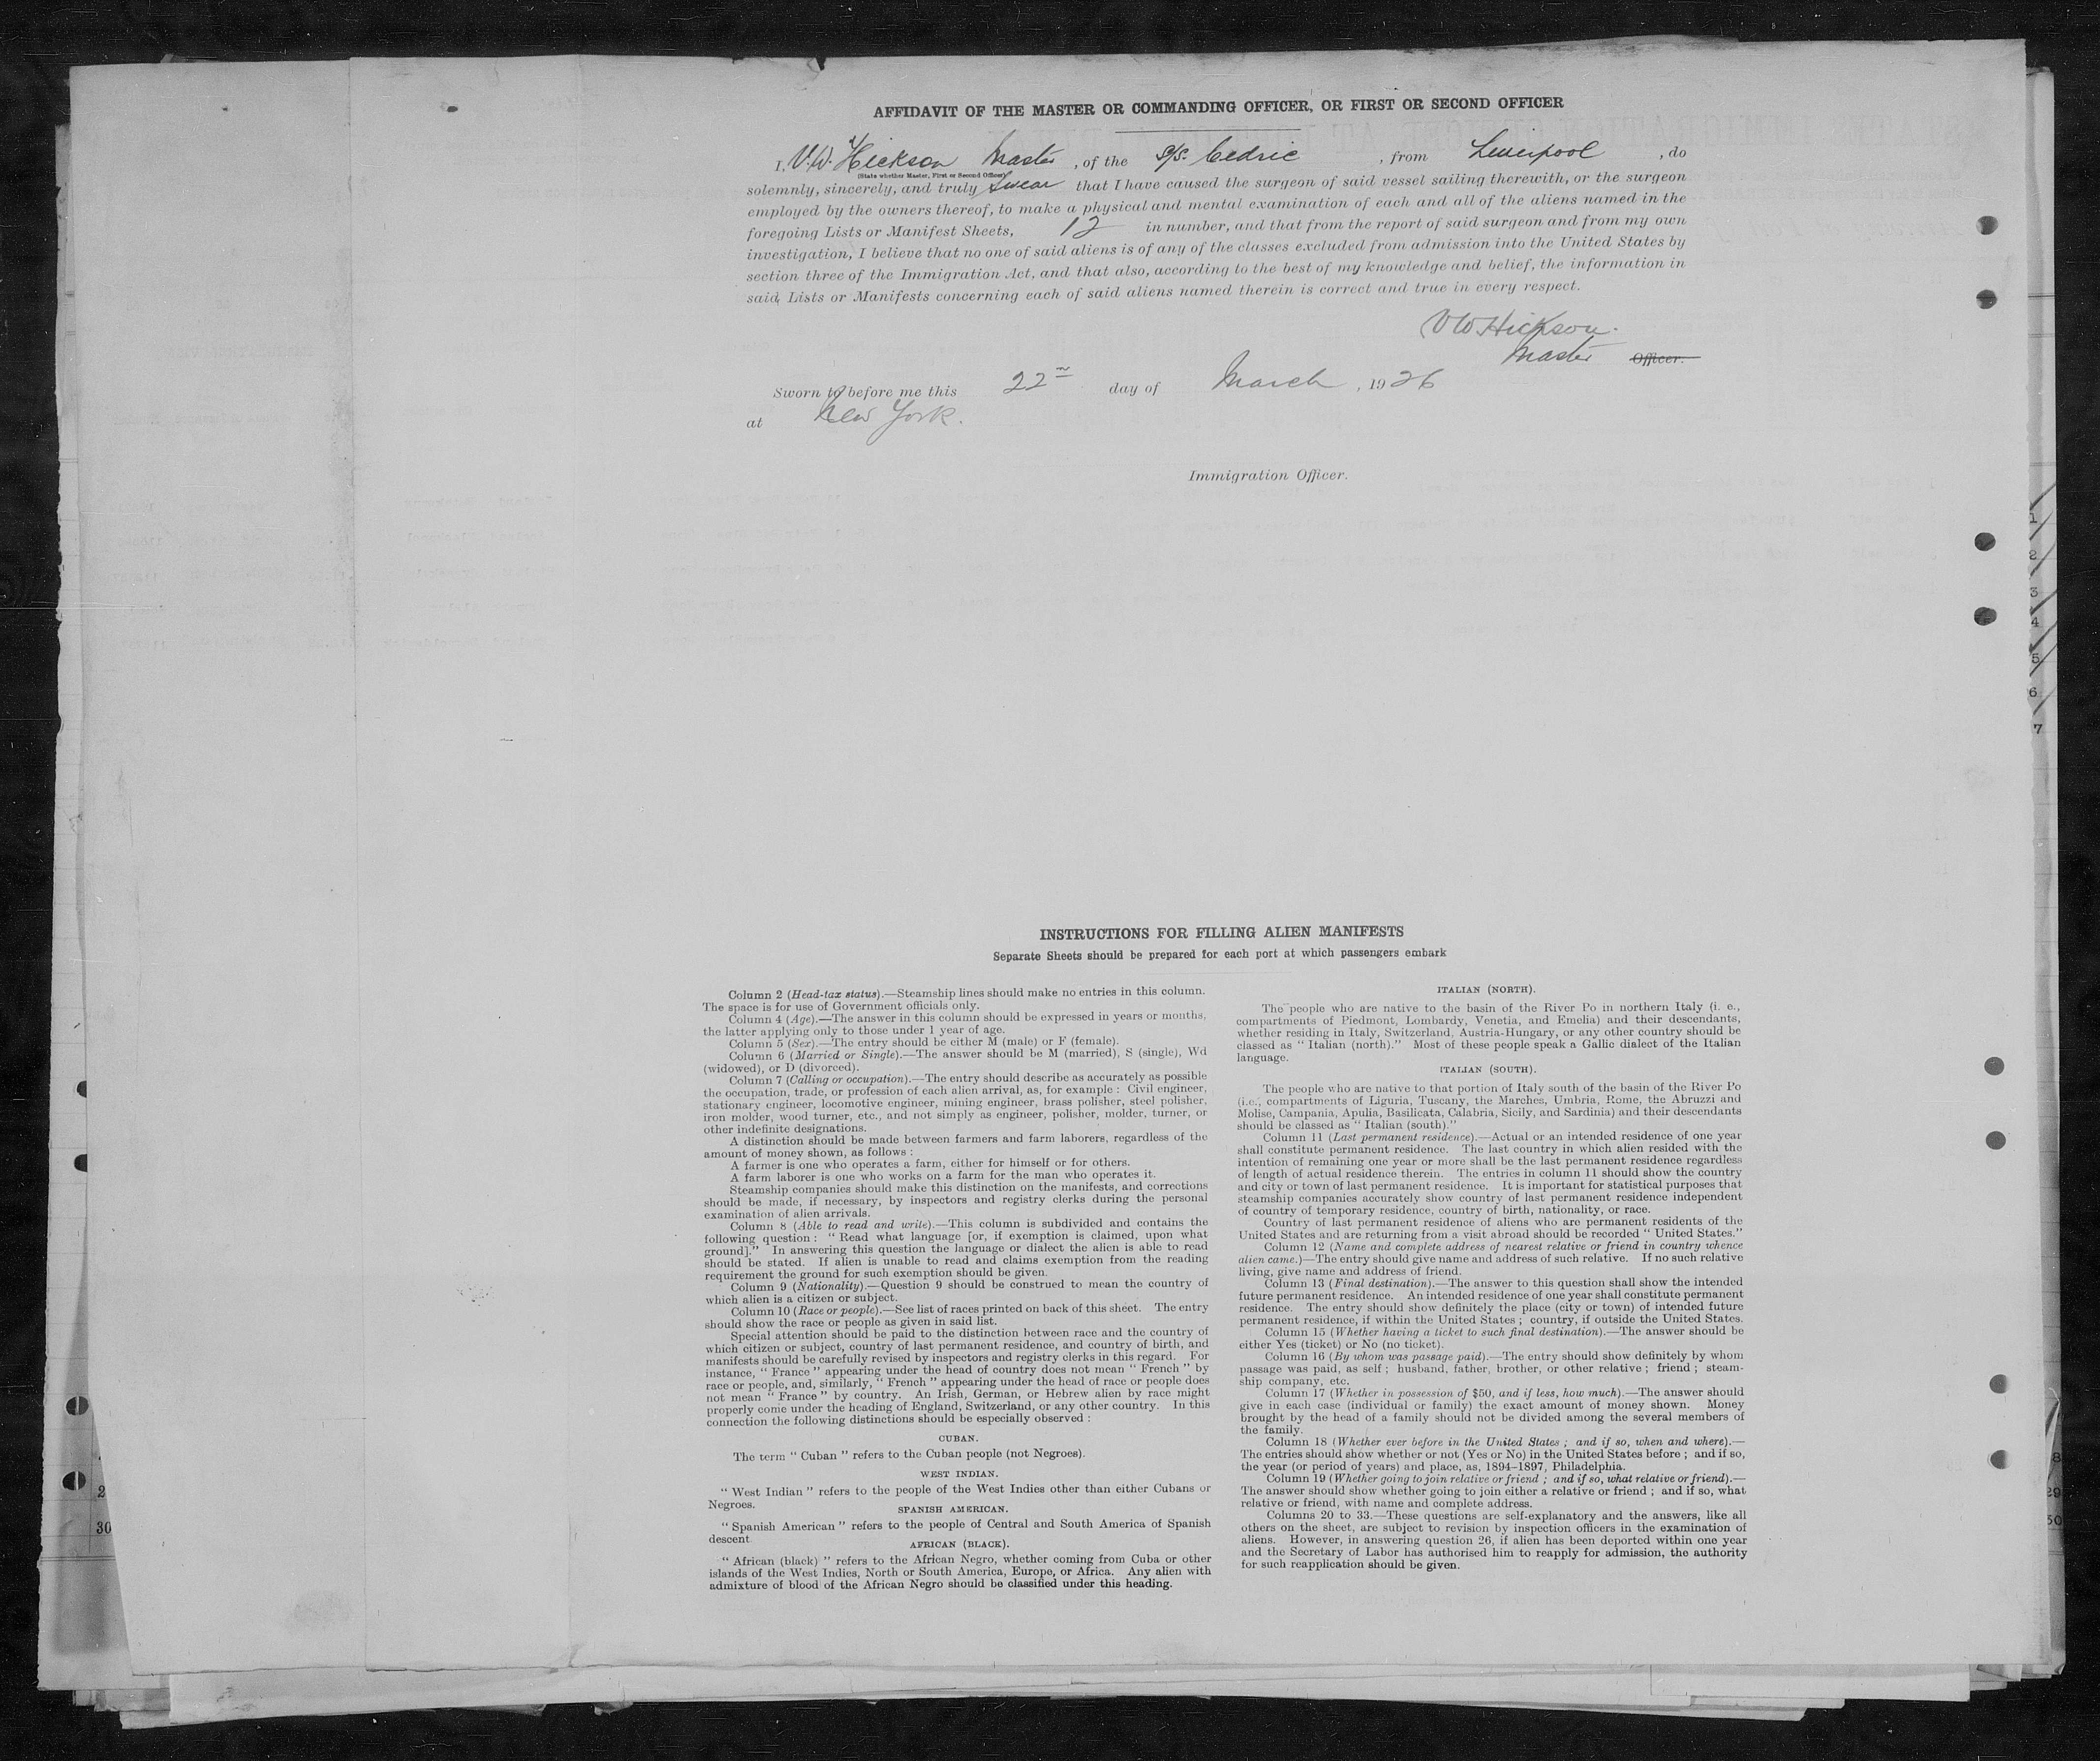 AFFIDAVIT OF THE MASTER OR COMMANDING OFFICER, OR FIRST OR SECOND OFFICER
I, V.W. Hickson Master, of the S/S. Cedric, from Liverpool, do
(State whether Master, First or Second Officer)
solemnly, sincerely, and truly swear that I have caused the surgeon of said vessel sailing therewith, or the surgeon
employed by the owners thereof, to make a physical and mental examination of each and all of the aliens named in the
foregoing Lists or Manifest Sheets, 12 in number, and that from the report of said surgeon and from my own
investigation, I believe that no one of said aliens is of any of the classes excluded from admission into the United States by
section three of the Immigration Act, and that also, according to the best of my knowledge and belief, the information in
said Lists or Manifests concerning each of said aliens named therein is correct and true in every respect.
V W Hickson.
Master Officer.
Sworn to before me this 22n day of March, 1926
at New York.
Immigration Officer.
1
2
3
4
5
6
7
INSTRUCTIONS FOR FILLING ALIEN MANIFESTS
Separate Sheets should be prepared for each port at which passengers embark
Column 2 (Head-tax status).—Steamship lines should make no entries in this column.
The space is for use of Government officials only.
Column 4 (Age).—The answer in this column should be expressed in years or months,
the latter applying only to those under 1 year of age.
Column 5 (Sex).—The entry should be either M (male) or F (female).
Column 6 (Married or Single).—The answer should be M (married), S (single), Wd
(widowed), or D (divorced).
Column 7 (Calling or occupation).—The entry should describe as accurately as possible
the occupation, trade, or profession of each alien arrival, as, for example : Civil engineer,
stationary engineer, locomotive engineer, mining engineer, brass polisher, steel polisher,
iron molder, wood turner, etc., and not simply as engineer, polisher, molder, turner, or
other indefinite designations.
A distinction should be made between farmers and farm laborers, regardless of the
amount of money shown, as follows :
A farmer is one who operates a farm, either for himself or for others.
A farm laborer is one who works on a farm for the man who operates it.
Steamship companies should make this distinction on the manifests, and corrections
should be made, if necessary, by inspectors and registry clerks during the personal
examination of alien arrivals.
Column 8 (Able to read and write).—This column is subdivided and contains the
following question : “ Read what language [or, if exemption is claimed, upon what
ground].” In answering this question the language or dialect the alien is able to read
should be stated. If alien is unable to read and claims exemption from the reading
requirement the ground for such exemption should be given.
Column 9 (Nationality).—Question 9 should be construed to mean the country of
which alien is a citizen or subject.
Column 10 (Race or people).—See list of races printed on back of this sheet. The entry
should show the race or people as given in said list.
Special attention should be paid to the distinction between race and the country of
which citizen or subject, country of last permanent residence, and country of birth, and
manifests should be carefully revised by inspectors and registry clerks in this regard. For
instance, “ France ” appearing under the head of country does not mean “ French ” by
race or people, and, similarly, “ French ” appearing under the head of race or people does
not mean “ France ” by country. An Irish, German, or Hebrew alien by race might
properly come under the heading of England, Switzerland, or any other country. In this
connection the following distinctions should be especially observed :
CUBAN.
The term “ Cuban ” refers to the Cuban people (not Negroes).
WEST INDIAN.
“ West Indian ” refers to the people of the West Indies other than either Cubans or
Negroes.
SPANISH AMERICAN.
“ Spanish American ” refers to the people of Central and South America of Spanish
descent
AFRICAN (BLACK).
“ African (black) ” refers to the African Negro, whether coming from Cuba or other
islands of the West Indies, North or South America, Europe, or Africa. Any alien with
admixture of blood of the African Negro should be classified under this heading.
ITALIAN (NORTH).
The people who are native to the basin of the River Po in northern Italy (i. e.,
compartments of Piedmont, Lombardy, Venetia, and Emelia) and their descendants,
whether residing in Italy, Switzerland, Austria-Hungary, or any other country should be
classed as “ Italian (north).” Most of these people speak a Gallic dialect of the Italian
language.
ITALIAN (SOUTH).
The people who are native to that portion of Italy south of the basin of the River Po
(i.e., compartments of Liguria, Tuscany, the Marches, Umbria, Rome, the Abruzzi and
Molise, Campania, Apulia, Basilicata, Calabria, Sicily, and Sardinia) and their descendants
should be classed as “ Italian (south).”
Column 11 (Last permanent residence).—Actual or an intended residence of one year
shall constitute permanent residence. The last country in which alien resided with the
intention of remaining one year or more shall be the last permanent residence regardless
of length of actual residence therein. The entries in column 11 should show the country
and city or town of last permanent residence. It is important for statistical purposes that
steamship companies accurately show country of last permanent residence independent
of country of temporary residence, country of birth, nationality, or race.
Country of last permanent residence of aliens who are permanent residents of the
United States and are returning from a visit abroad should be recorded “ United States.”
Column 12 (Name and complete address of nearest relative or friend in country whence
alien came.)—The entry should give name and address of such relative. If no such relative
living, give name and address of friend.
Column 13 (Final destination).—The answer to this question shall show the intended
future permanent residence. An intended residence of one year shall constitute permanent
residence. The entry should show definitely the place (city or town) of intended future
permanent residence, if within the United States ; country, if outside the United States.
Column 15 (Whether having a ticket to such final destination).—The answer should be
either Yes (ticket) or No (no ticket).
Column 16 (By whom was passage paid).—The entry should show definitely by whom
passage was paid, as self ; husband, father, brother, or other relative ; friend ; steam-
ship company, etc.
Column 17 (Whether in possession of $50, and if less, how much).—The answer should
give in each case (individual or family) the exact amount of money shown. Money
brought by the head of a family should not be divided among the several members of
the family.
Column 18 (Whether ever before in the United States ; and if so, when and where).—
The entries should show whether or not (Yes or No) in the United States before ; and if so,
the year (or period of years) and place, as, 1894–1897, Philadelphia.
Column 19 (Whether going to join relative or friend ; and if so, what relative or friend).—
The answer should show whether going to join either a relative or friend ; and if so, what
relative or friend, with name and complete address.
Columns 20 to 33.—These questions are self-explanatory and the answers, like all
others on the sheet, are subject to revision by inspection officers in the examination of
aliens. However, in answering question 26, if alien has been deported within one year
and the Secretary of Labor has authorised him to reapply for admission, the authority
for such reapplication should be given.
30